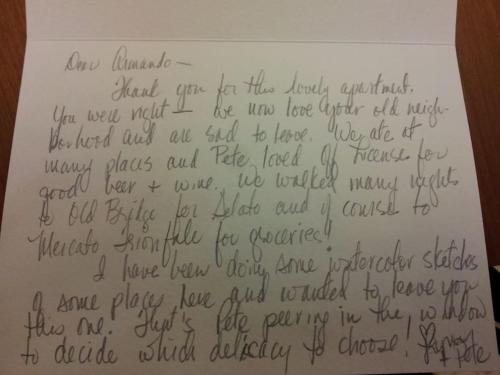 Dear Armando —
Thank you for this lovely apartment.
You were right — we now love your old neigh-
borhood and are sad to leave. We ate at
many places and Pete loved Off License for
good beer + wine. We walked many nights
to Old Bridge for Gelato and of course to
Mercato Trionfale for groceries!!
I have been doing some watercolor sketches
of some places here and wanted to leave you
this one. That's Pete peering in the window
to decide which delicacy to choose!
Pete